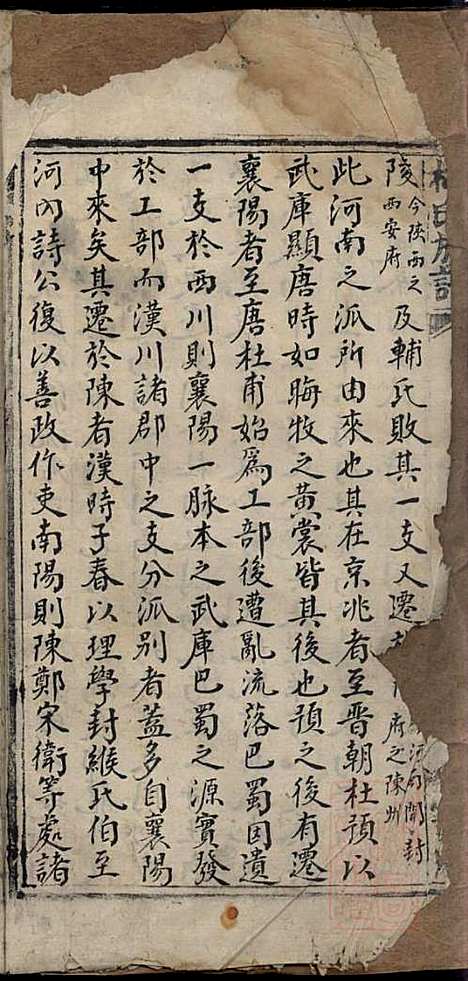 杜氏族譜
陵今陝西之西安府及輔氏敗其一支又遷 河南開封府之陳州
此河南之派所由來也其在京兆者至晋朝杜預以
武庫顯唐時如晦牧之黄裳皆其後也預之後有遷
襄陽者至唐杜甫始爲工部後遭亂流落巴蜀因遺
一支於西川則襄陽一脉本之武庫巴蜀之源實發
於工部而漢川諸郡中之支分派别者蓋多自襄陽
中來矣其遷於陳者漢時子春以理學封緱氏伯至
河内詩公復以善政作吏南陽則陳鄭宋衛等處諸